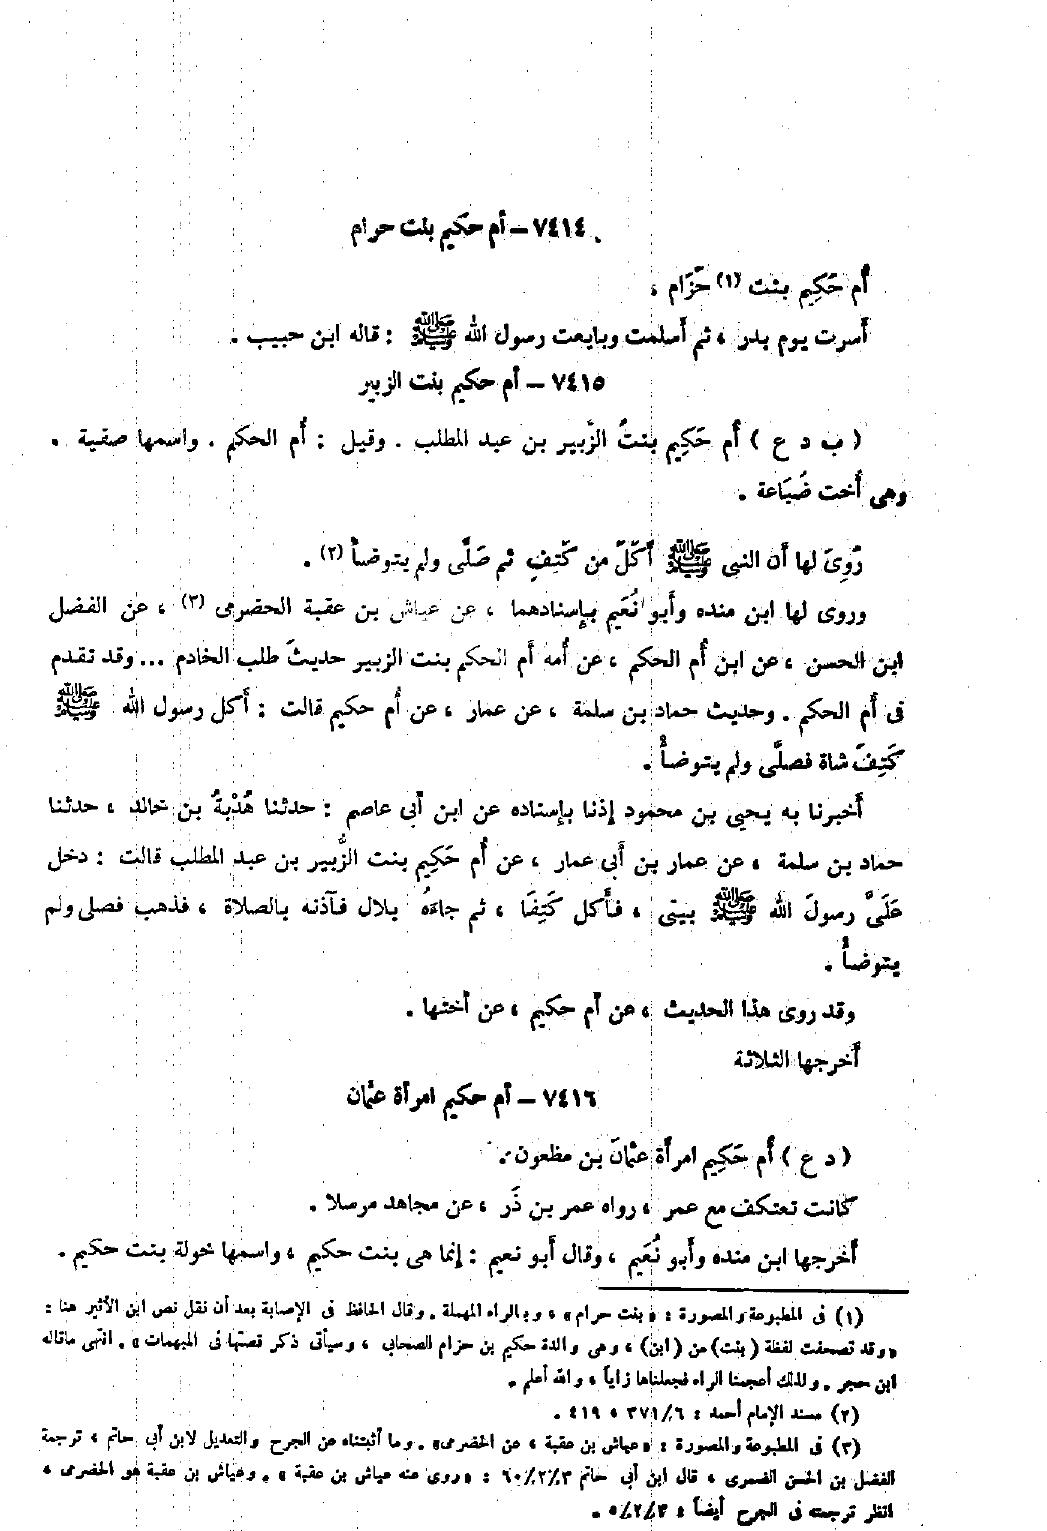 ٧٤١٤ – أم حكيم بنت حرام
أم حَكِيم بنت (١) حَزَام ،
أسرت يوم بدر ، ثم أسلمت وبايعت رسول الله ﷺ : قاله ابن حبيب .
٧٤١٥ – أم حكيم بنت الزبير
( ب د ع ) أم حَكِيم بنتُ الزَّبير بن عبد المطلب . وقيل : أُم الحكم . واسمها صفية .
وهى أخت ضُبَاعة .
رُوِىَ لها أن النبى ﷺ أكَلَ من كَتِفٍ ثم صَلَّى ولم يتوضأ (٢) .
وروى لها ابن منده وأبو نُعَيم بإسنادهما ، عن عياش بن عقبة الحضرمى (٣) ، عن الفضل
ابن الحسن ، عن ابن أُم الحكم ، عن أُمه أَم الحكم بنت الزبير حديثَ طلب الخادم ... وقد تقدم
فى أَم الحكم . وحديث حماد بن سلمة ، عن عمار ، عن أُم حكيم قالت : أكل رسول الله ﷺ
كَتِفَ شاة فصلَّى ولم يتوضأُ .
أَخبرنا به يحيى بن محمود إذنا بإسناده عن ابن أبى عاصم : حدثنا هُدْبةُ بن خالد ، حدثنا
حماد بن سلمة ، عن عمار بن أَبى عمار ، عن أُم حَكِيم بنت الزُّبير بن عبد المطلب قالت : دخل
عَلَىَّ رسولَ الله ﷺ بيتى ، فأَكل كَتِفَا ، ثم جاءَهُ بلال فآذنه بالصلاة ، فذهب فصلى ولم
يتوضأُ .
وقد روى هذا الحديث ، عن أم حكيم ، عن أختها .
أَخرجها الثلاثة
٧٤١٦ – أم حكيم امرأة عثمان
( د ع ) أُم حَكِيم امرأَة عثمانَ بن مظعون .
كانت تعتكف مع عمر ، رواه عمر بن ذَر ، عن مجاهد مرسلا .
أَخرجها ابن منده وأَبو نُعَيم ، وقال أَبو نعيم : إنما هى بنت حكيم ، واسمها خولة بنت حكيم .
(١) فى المطبوعة والمصورة : « بنت حرام » ، وبالراء المهملة . وقال الحافظ فى الإصابة بعد أن نقل نص ابن الأثير هنا :
« وقد تصحفت لفظة (بنت) من (ابن) ، وهى والدة حكيم بن حزام الصحابى ، وسيأتى ذكر قصتها فى المبهمات » . انتهى ماقاله
ابن حجر . ولذلك أعجمنا الراء فجعلناها زاياً ، والله أعلم .
(٢) مسند الإمام أحمد : ٦/ ٣٧١ ، ٤١٩ .
(٣) فى المطبوعة والمصورة : « عياش بن عقبة ، عن الحضرمى» . وما أثبتناه عن الجرح والتعديل لابن أبى حاتم ، ترجمة
الفضل بن الحسن الضمرى ، قال ابن أبى حاتم ٣/ ٢/ ٦٠ : « روى عنه عياش بن عقبة » . وعياش بن عقبة هو الحضرمى ،
انظر ترجمته فى الجرح أيضاً : ٣/ ٢/ ٥ .